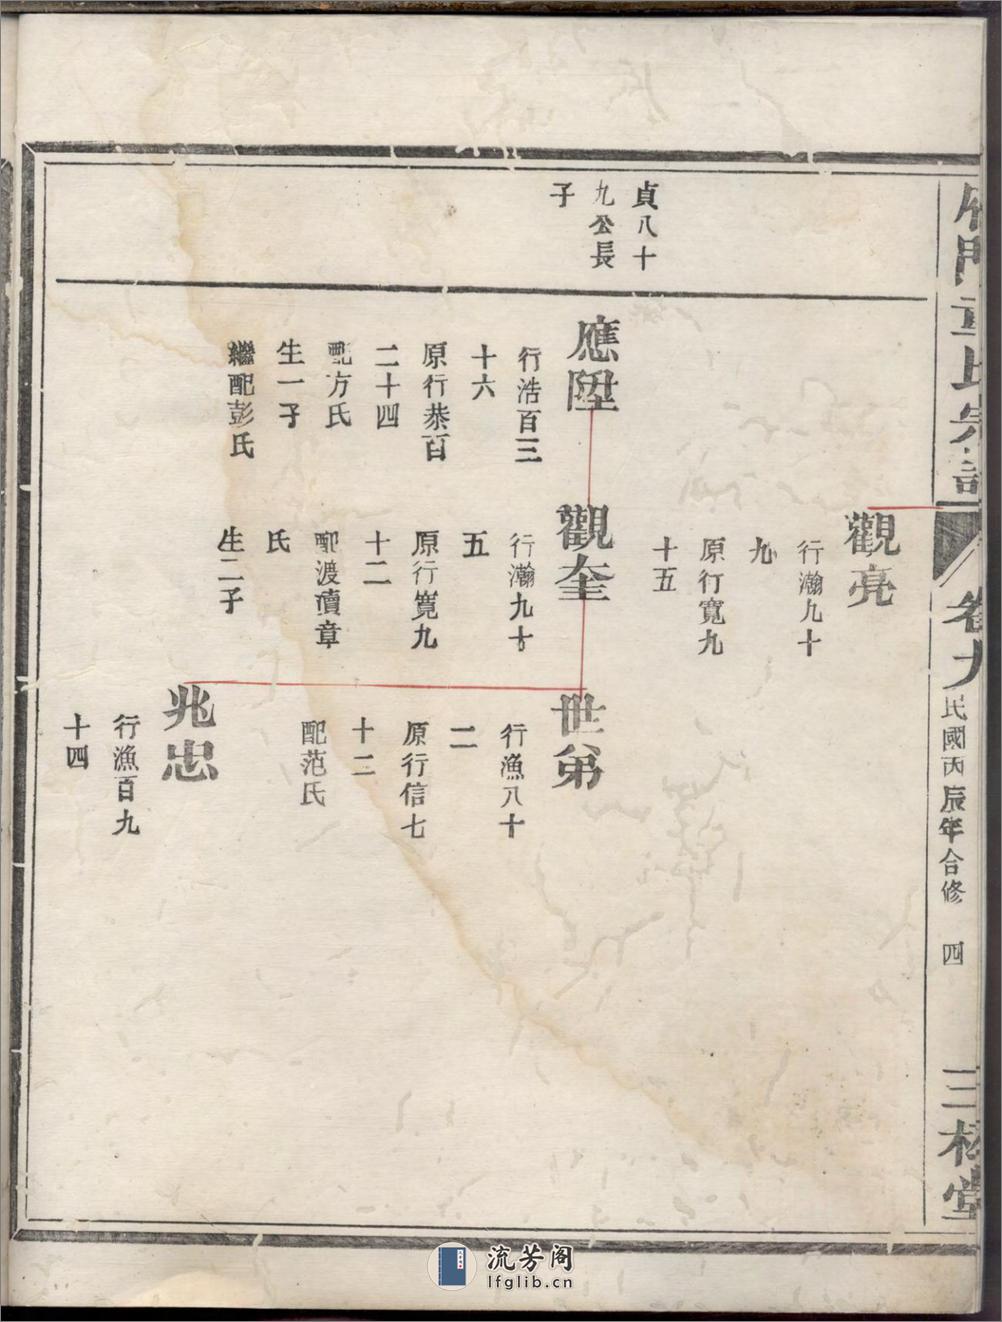 雁門童氏宗譜
卷九
民國丙辰年合修
四
三林堂
觀亮
行瀚九十
九
原行寬九
十五
貞八十
九公長
子
應陞
行浩百三
十六
原行恭百
二十四
配方氏
生一子
繼配彭氏
觀奎
行瀚九十
五
原行寬九
十二
配渡瀆章
氏
生二子
世弟
行漁八十
二
原行信七
十二
配范氏
兆忠
行漁百九
十四
流芳阁
lfglib.cn